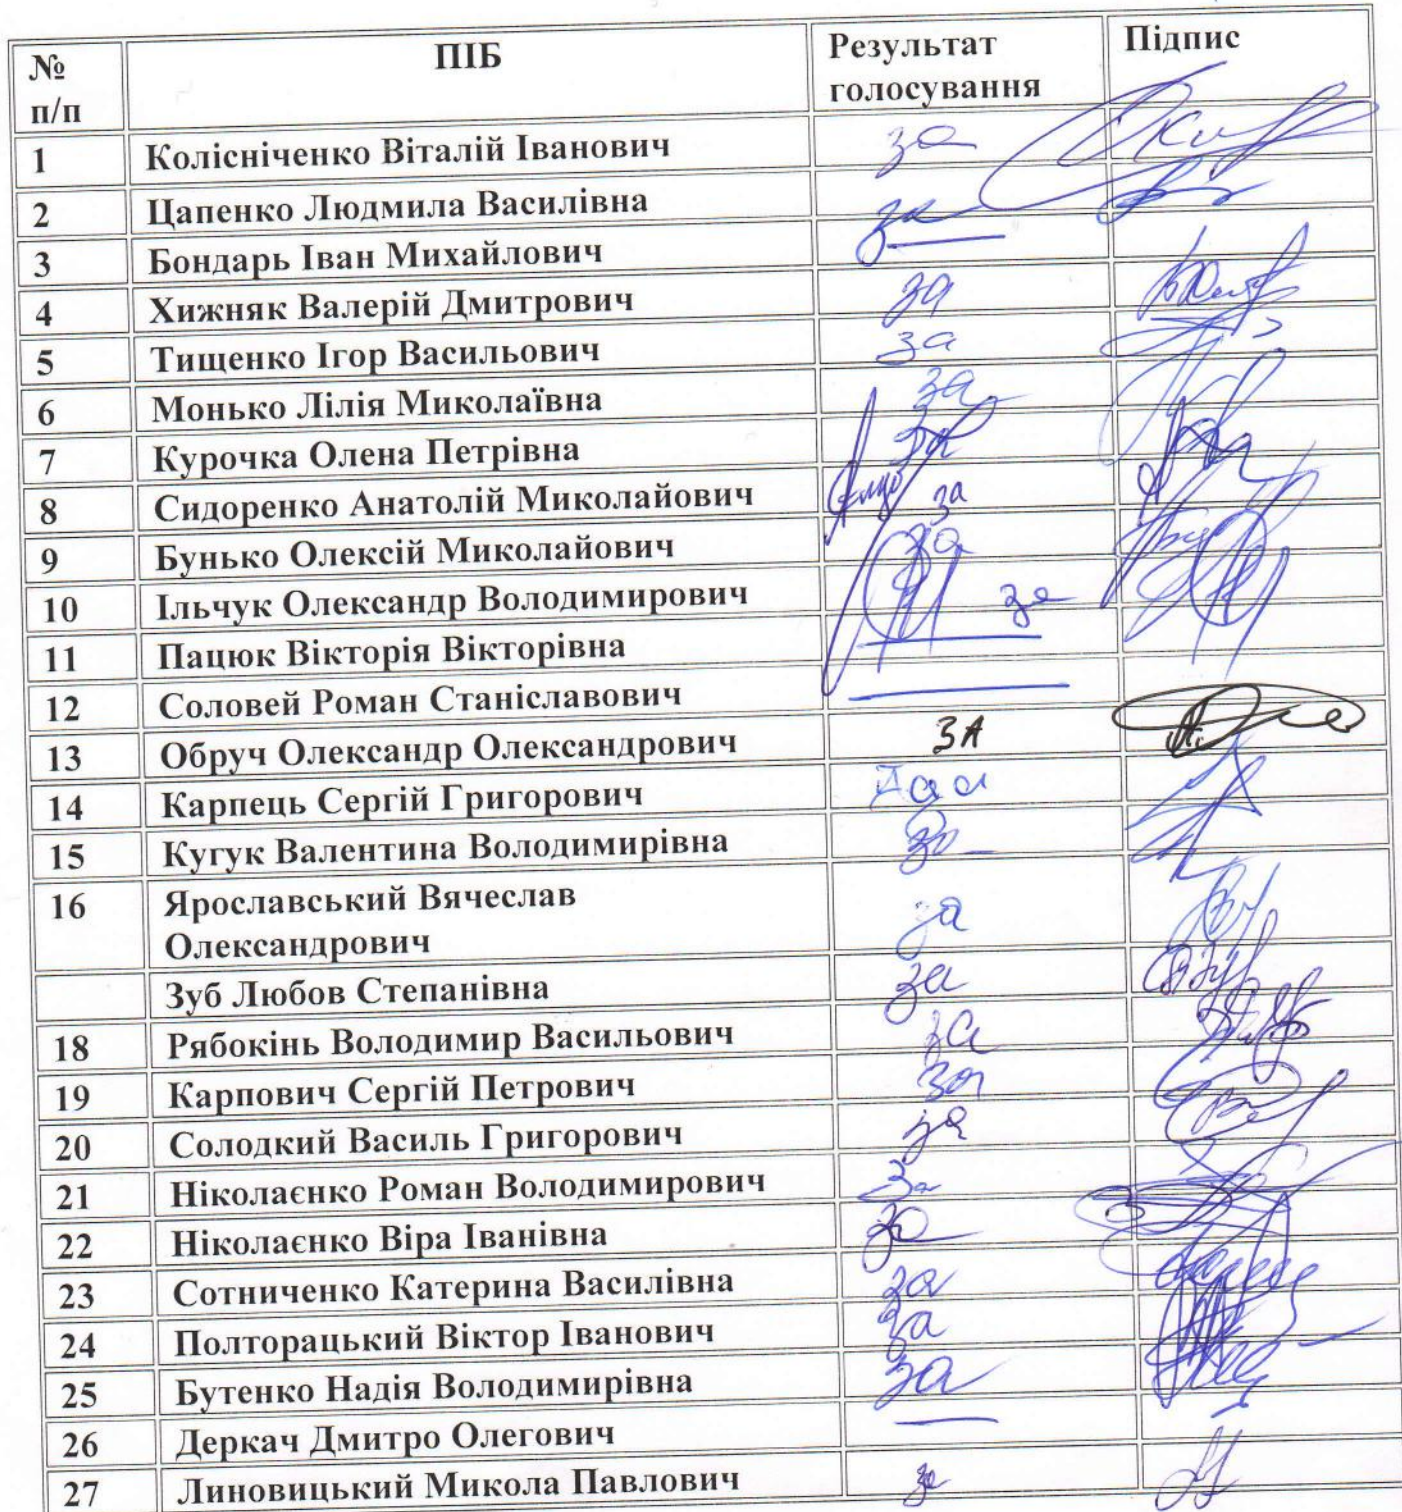 № п/п ПІБ Результат голосування Підпис
1 Колісніченко Віталій Іванович за
2 Цапенко Людмила Василівна за
3 Бондарь Іван Михайлович —
4 Хижняк Валерій Дмитрович за
5 Тищенко Ігор Васильович за
6 Монько Лілія Миколаївна за
7 Курочка Олена Петрівна за
8 Сидоренко Анатолій Миколайович за
9 Бунько Олексій Миколайович за
10 Ільчук Олександр Володимирович за
11 Пацюк Вікторія Вікторівна —
12 Соловей Роман Станіславович —
13 Обруч Олександр Олександрович ЗА
14 Карпець Сергій Григорович
15 Кугук Валентина Володимирівна за
16 Ярославський Вячеслав
Олександрович за
Зуб Любов Степанівна за
18 Рябокінь Володимир Васильович за
19 Карпович Сергій Петрович за
20 Солодкий Василь Григорович за
21 Ніколаєнко Роман Володимирович За
22 Ніколаєнко Віра Іванівна за
23 Сотниченко Катерина Василівна за
24 Полторацький Віктор Іванович за
25 Бутенко Надія Володимирівна за
26 Деркач Дмитро Олегович —
27 Линовицький Микола Павлович за